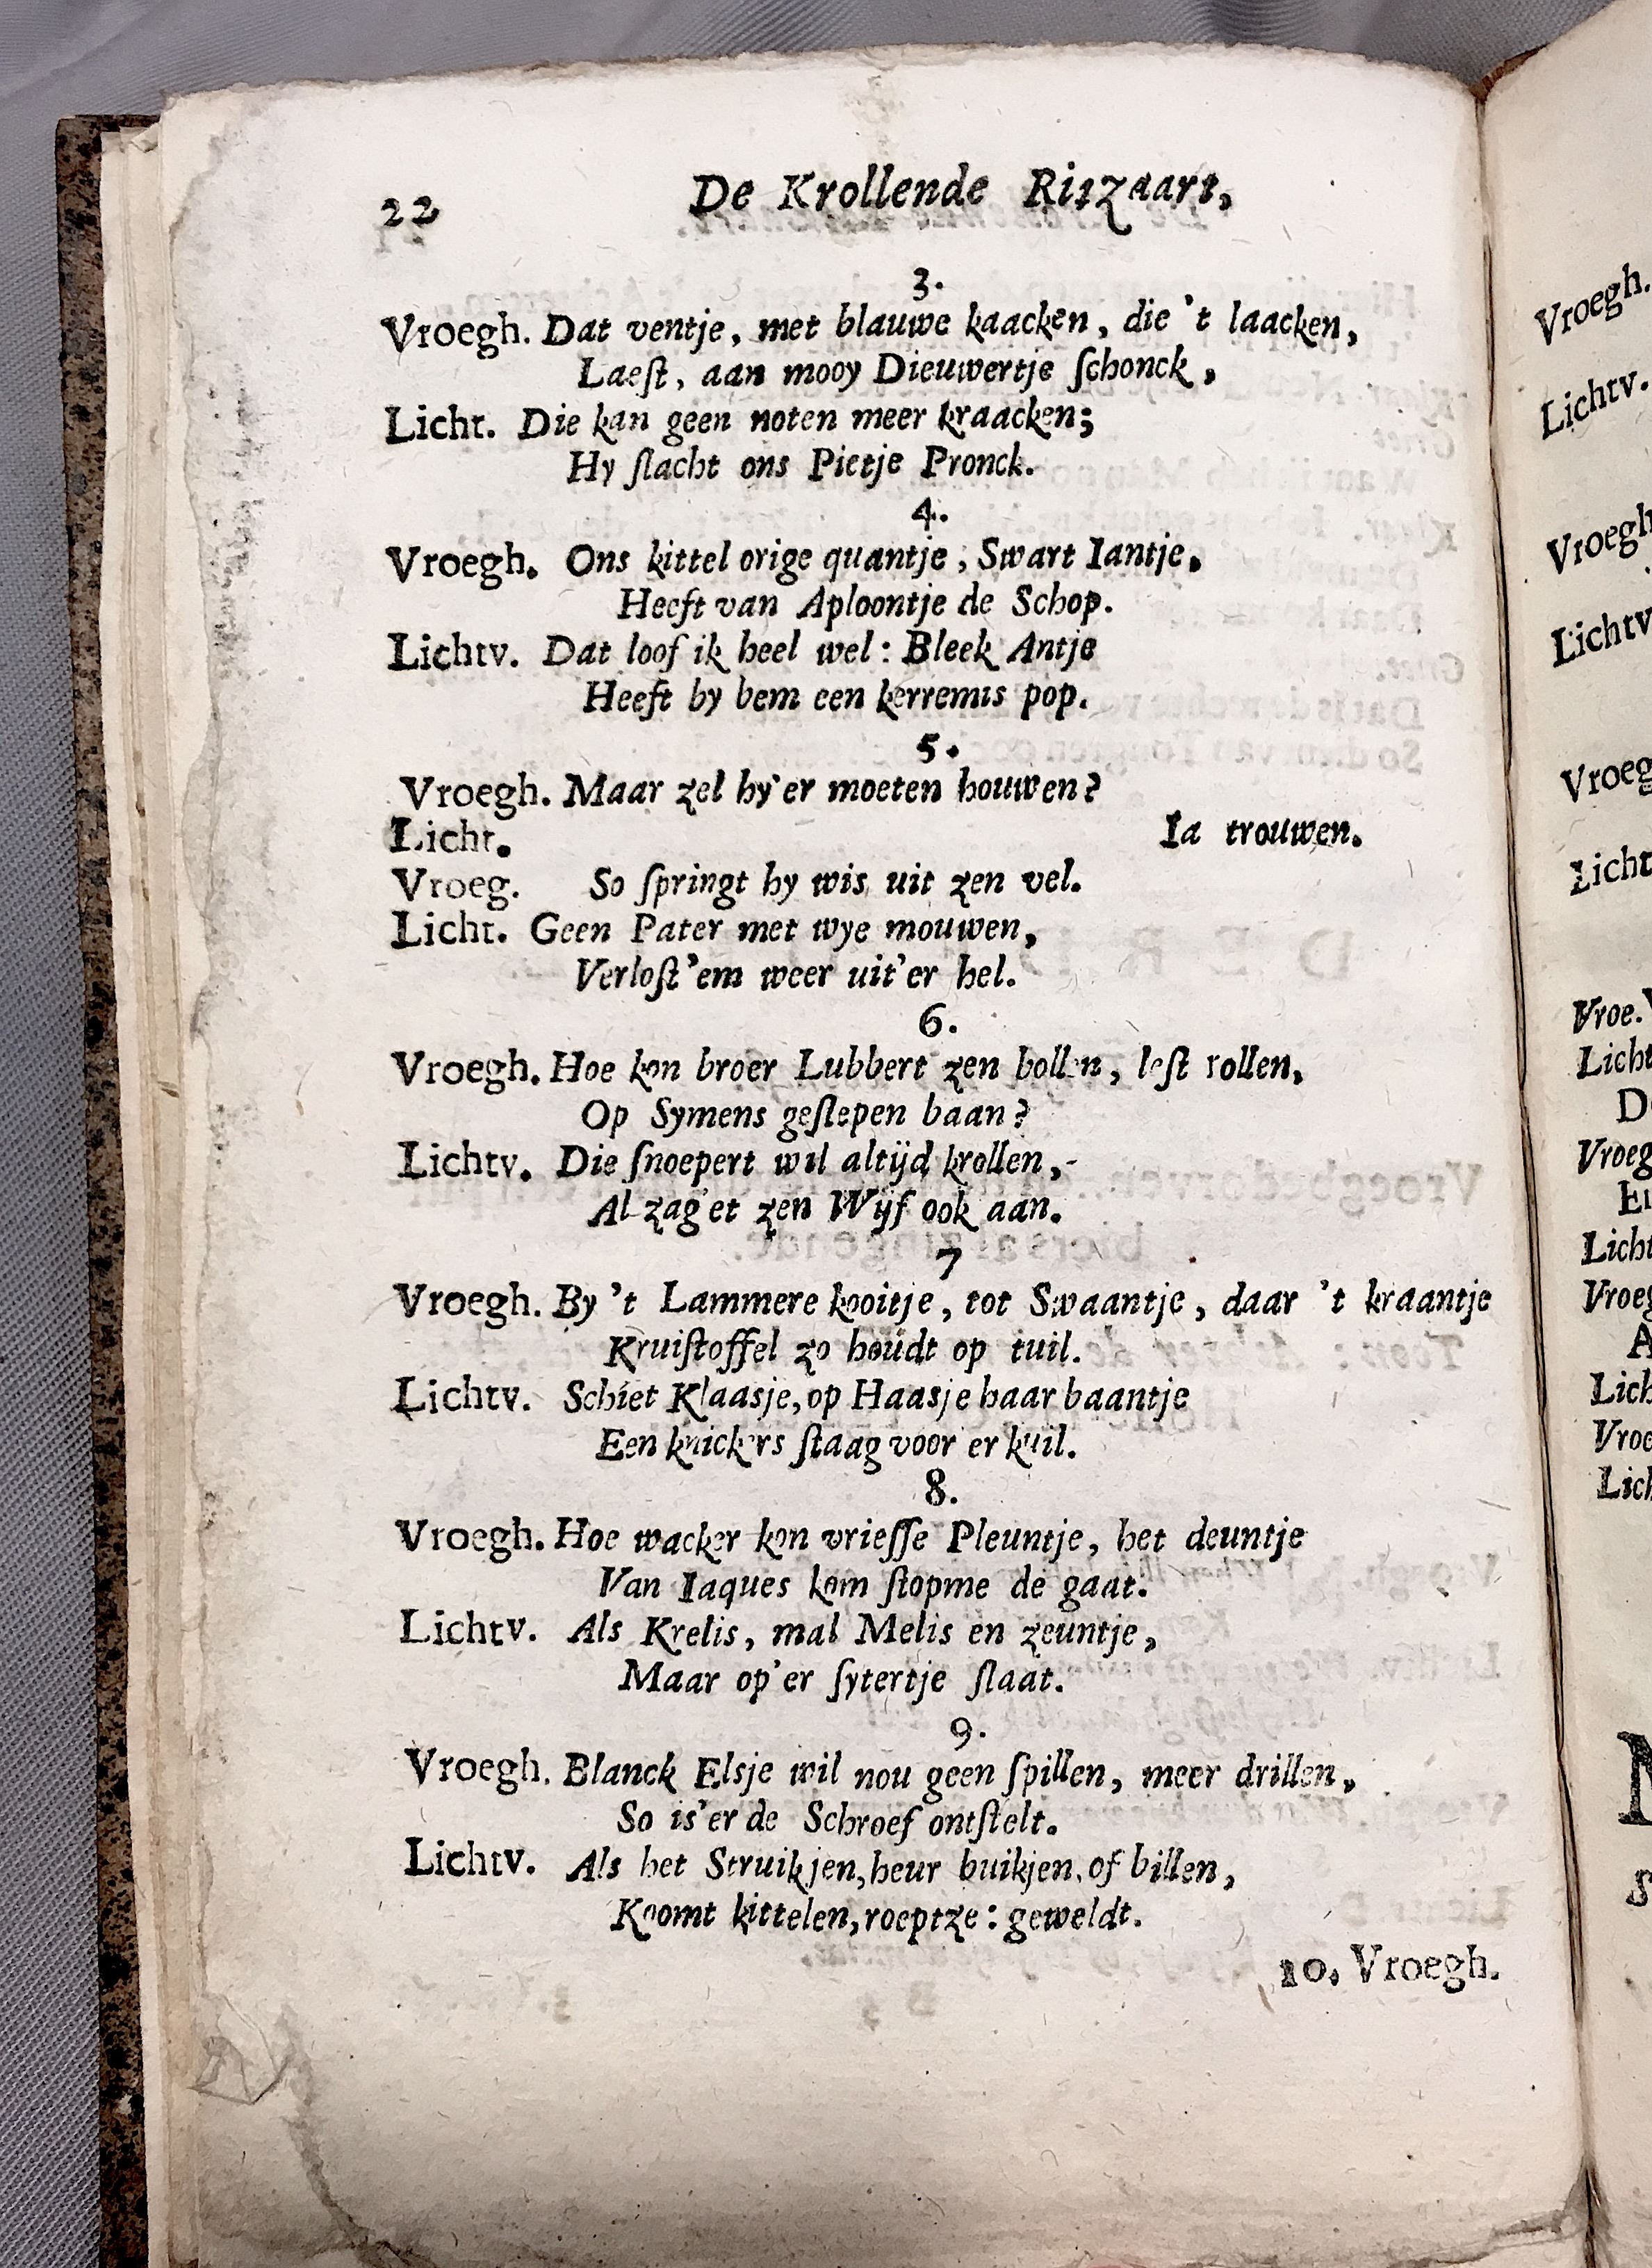 22 De Krollende Ritzaart,
3.
Vroegh. Dat ventje, met blauwe kaacken, die 't laacken,
Laeſt, aan mooy Dieuwertje ſchonck,
Licht. Die kan geen noten meer kraacken;
Hy ſlacht ons Pietje Pronck.
4.
Vroegh. Ons kittel orige quantje, Swart Iantje,
Heeft van Aploontje de Schop.
Lichtv. Dat loof ik heel wel: Bleek Antje
Heeft by hem een kerremis pop.
5.
Vroegh. Maar zel hy'er moeten houwen?
Licht. Ia trouwen.
Vroeg. So ſpringt hy wis uit zen vel.
Licht. Geen Pater met wye mouwen,
Verloſt'em weer uit'er hel.
6.
Vroegh. Hoe kon broer Lubbert zen bollen, leſt rollen,
Op Symens geſlepen baan?
Lichtv. Die ſnoepert wil altijd krollen,-
Al zag'et zen Wijf ook aan.
7
Vroegh. By 't Lammere kooitje, tot Swaantje, daar 't kraantje
Kruiſtoffel zo houdt op tuil.
Lichtv. Schiet Klaasje, op Haasje haar baantje
Een knickers ſtaag voor er kuil.
8.
Vroegh. Hoe wacker kon vrieſſe Pleuntje, het deuntje
Van Iaques kom ſtopme de gaat.
Lichtv. Als Krelis, mal Melis en zeuntje,
Maar op'er ſytertje ſlaat.
9.
Vroegh. Blanck Elsje wil nou geen ſpillen, meer drillen,
So is'er de Schroef ontſtelt.
Lichtv. Als het Struikjen, heur buikjen, of billen,
Koomt kittelen, roeptze: geweldt.
10. Vroegh.
Vroegh.
Lichtv.
Vroegh
Lichtv
Vroeg
Licht
Vroe.
Licht
Vroeg
Licht
Vroeg
Lich
Vroe
Lich